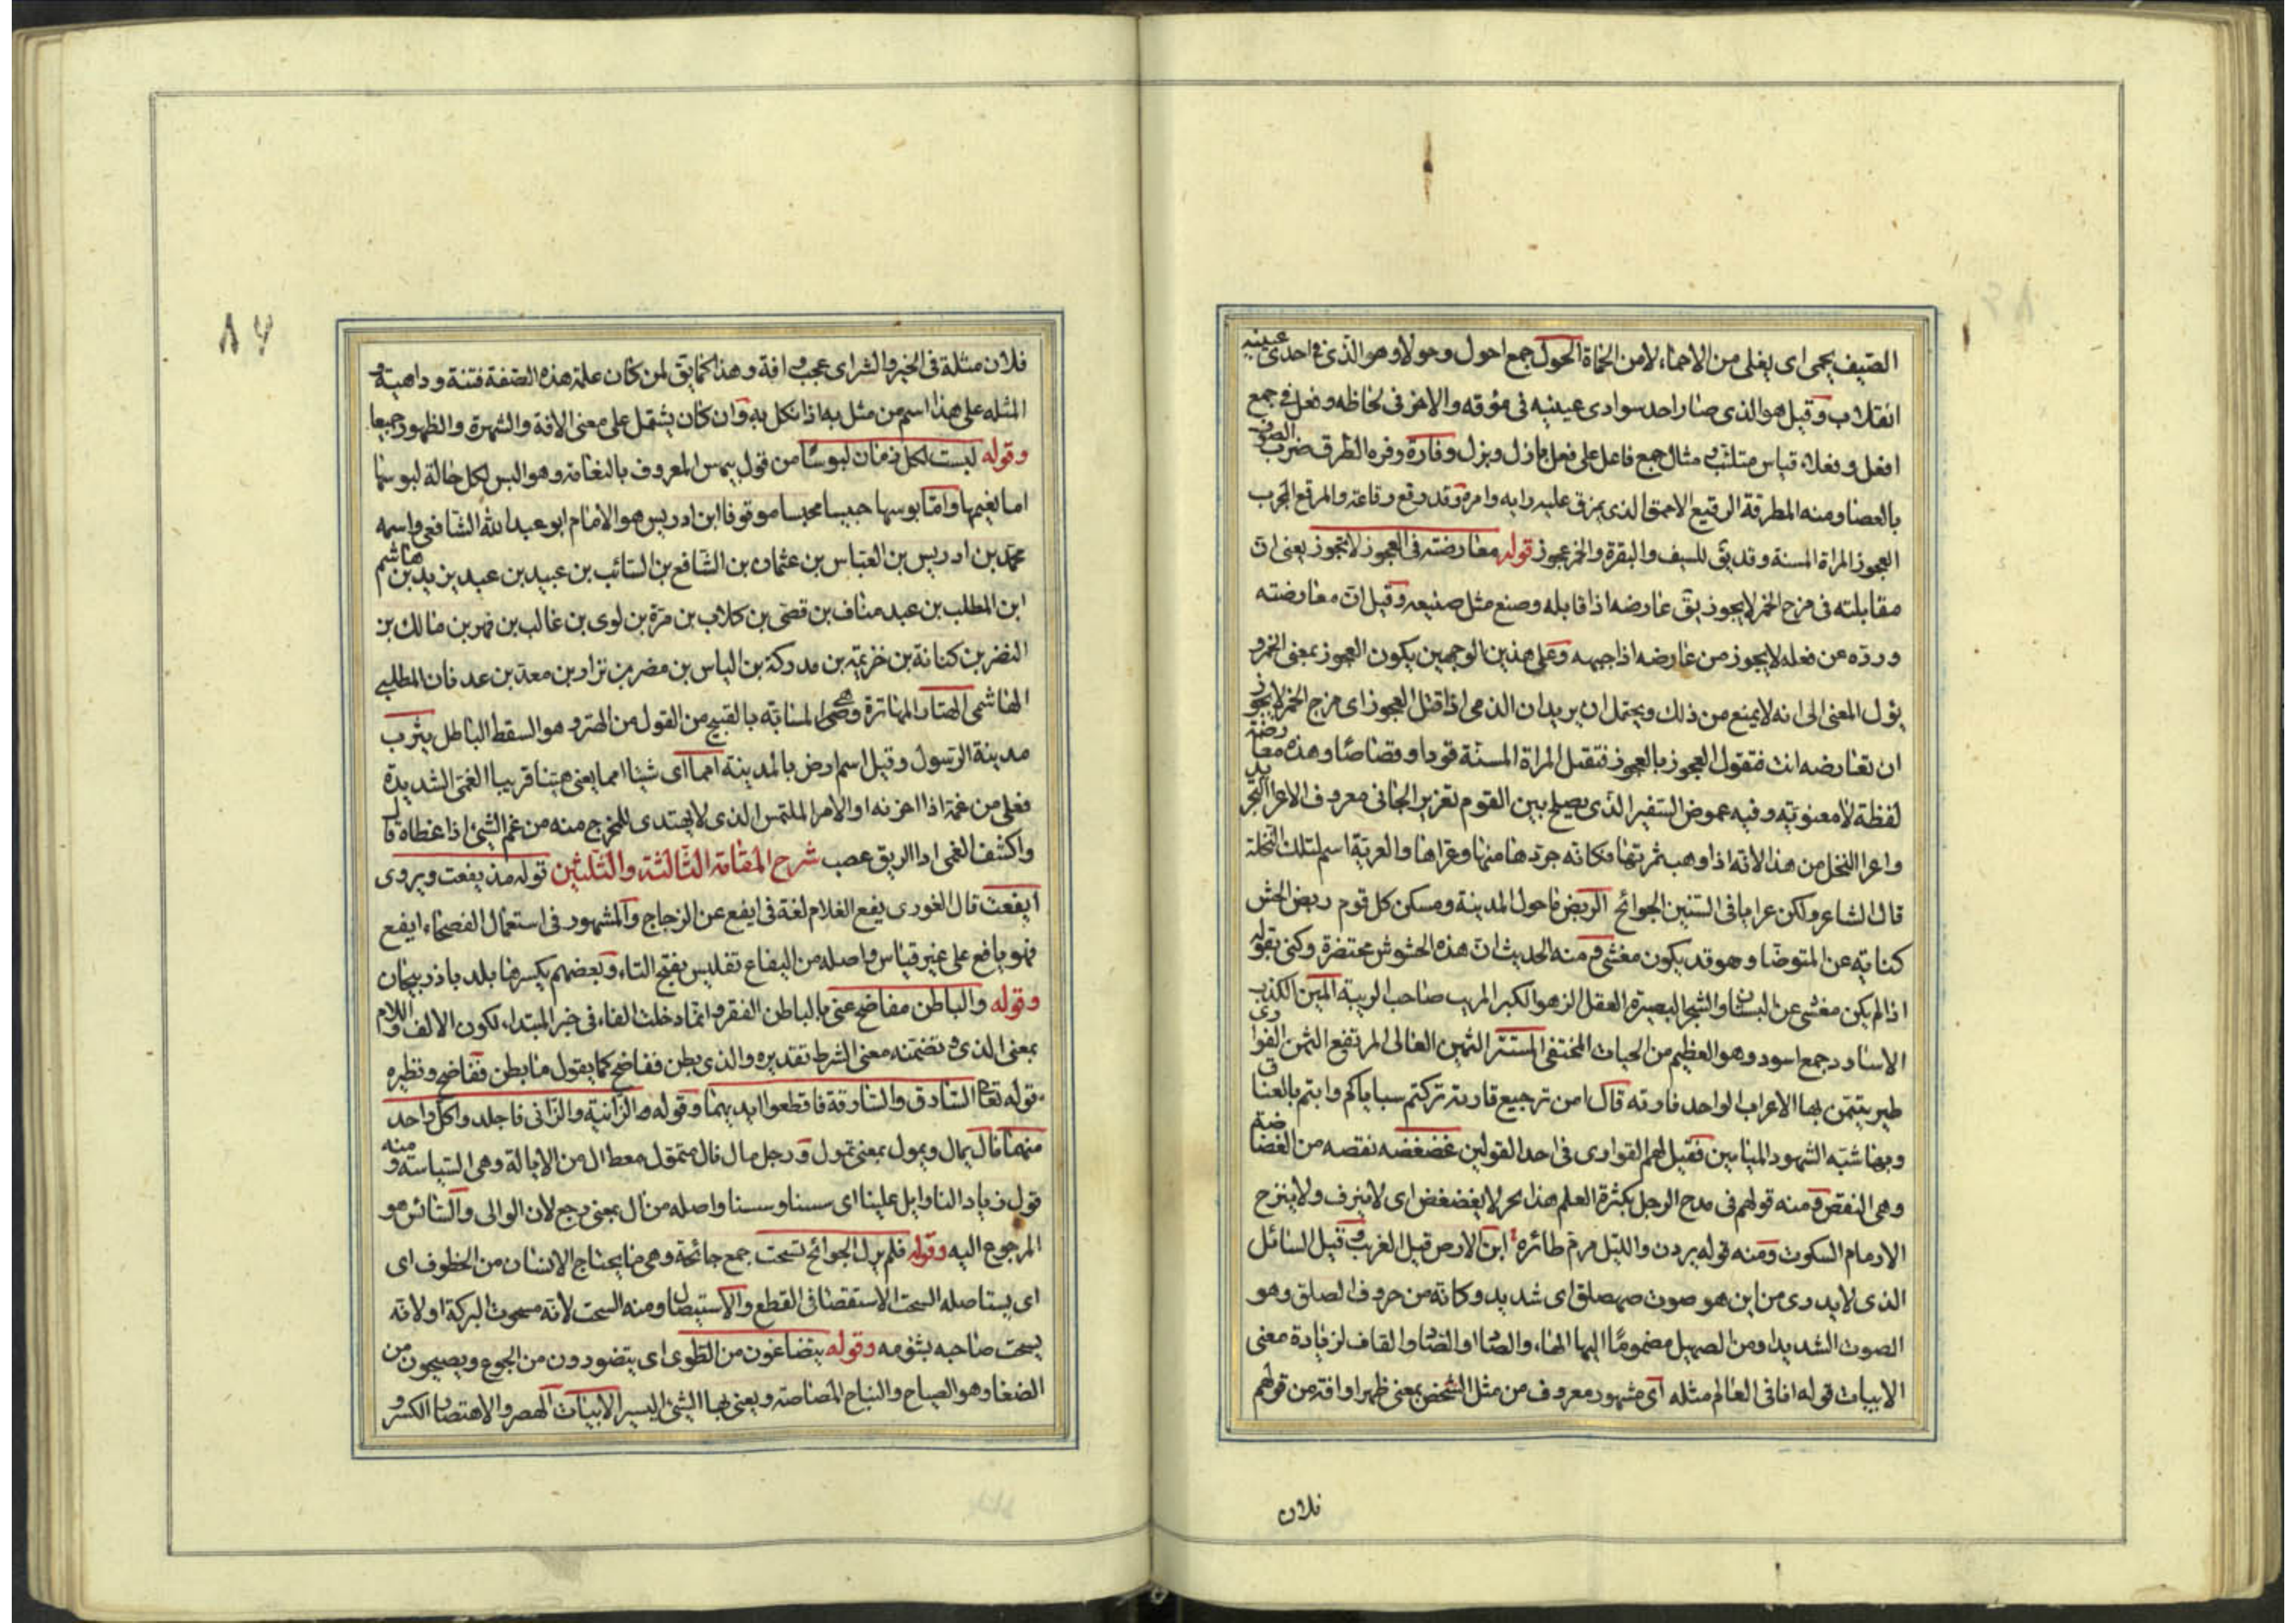 الصيف يحمى اى يغلى من الاحماء لا من الحماة الحول جمع احول وحولاء وهو الذى فى احدى عينيه
انقلاب وقيل هو الذى صار احد سوادى عينيه فى مؤقه والاخر فى لحاظه وفعل فى جمع
افعل وفعلاء قياس متلئب مثال جمع فاعل على فعل بازل وبزل وفارة وفره الطرق ضرب الصوف
بالعصا ومنه المطرقة الرقيع الاحمق الذى يمزق عليه رايه وامره وقد رقع رقاعة والمرقع المجرب
العجوز المراة المسنة وقد يق للسيف والبقرة والخمر عجوز قوله معارضته فى العجوز لا يتجوز يعنى ان
مقابلته فى مزج الخمر لا يجوز يق عارضه اذا قابله وصنع مثل صنيعه وقيل ان معارضته
ورده عن فعله لا يجوز من عارضه اذا جبهه وعلى هذين الوجهين يكون العجوز بمعنى الخمر و
يؤل المعنى الى انه لا يمنع من ذلك ويحتمل ان يريد ان الذمى اذا قتل العجوز اى مزج الخمر لا يجوز
ان تعارضه انت فتقول العجوز بالعجوز فتقتل المراة المسنة قودا وقصاصا وهذه معارضة
لفظة لا معنوية وفيه غموض السفير الذى يصلح بين القوم تعزير الجانى معروف الاعرا التجريد
واعرا النخل من هذا لانه اذا وهب ثمرتها فكانه جردها منها وعراها والعرية اسم لتلك النخلة
قال الشاعر ولكن عرايا فى السنين الجوائح الربض ما حول المدينة ومسكن كل قوم ربض الحش
كناية عن المتوضا وهو قد يكون مغشى ومنه الحديث ان هذه الحشوش محتضرة وكنى بقوله
اذا لم يكن مغشى عن البستان والشجر البصيرة العقل الزهو الكبر المريب صاحب الريبة المين الكذب
الاساود جمع اسود وهو العظيم من الحيات المختفى المستتر الثمين الغالى المرتفع الثمن الفوارى
طير يتيمن بها الاعراب الواحد فاريه قال امن ترجيع قارية تركتم سباياكم وابتم بالعناق
وبها شبه الشهود الميامين فقيل لهم القوارى فى احد القولين غضغضه نقصه من الغضاضة
وهى النقص ومنه قولهم فى مدح الرجل بكثرة العلم هذا بحر لا يغضغض اى لا ينزف ولا ينزح
الارمام السكوت ومنه قوله يردن والليل مرم طائره ابن الارض قيل الغريب وقيل السائل
الذى لا يدرى من اين هو صوت صهصلق اى شديد وكانه من حروف الصلق وهو
الصوت الشديد ومن الصهيل مضموما اليها الهاء والصاد والقاف لزيادة معنى
الابيات قوله انا فى العالم مثله اى مشهور معروف من مثل الشخص بمعنى ظهر او افة من قولهم
فلان
٨٦
فلان مثلة فى الخير والشر اى عجب وافة وهذا كما يق لمن كان على هذه الصفة فتنة وداهية و
المثله على هذا اسم من مثل به اذا نكل به وان كان يشتمل على معنى الافة والشهرة والظهور جميعا
وقوله لبست لكل زمان لبوسا من قول بيهس المعروف بالنعامة وهو البس لكل حالة لبوسها
اما نعيمها واما بوسها حبيسا محبسا موقوفا ابن ادريس هو الامام ابو عبد الله الشافعى واسمه
محمد بن ادريس بن العباس بن عثمان بن الشافع بن السائب بن عبيد بن عبد يزيد بن هاشم
ابن المطلب بن عبد مناف بن قصى بن كلاب بن مرة بن لوى بن غالب بن فهر بن مالك بن
النضر بن كنانة بن خزيمة بن مدركة بن الياس بن مضر بن نزار بن معد بن عدنان المطلبى
الهاشمى الهتار المهاترة وهى المسابة بالقبيح من القول من الهتر وهو السقط الباطل يثرب
مدينة الرسول وقيل اسم ارض بالمدينة امما اى شيئا امما يعنى هينا قريبا الغمى الشديدة
فعلى من غمه اذا احزنه او الامر الملتمس الذى لا يهتدى للمخرج منه من غم الشئ اذا غطاه قال
واكشف الغمى اذا الريق عصب شرح المقامة الثالثة والثلثين قوله مذ يفعت ويروى
ايفعت قال الغورى يفع الغلام لغة فى ايفع عن الزجاج والمشهور فى استعمال الفصحاء ايفع
فهو يافع على غير قياس واصله من اليفاع تفليس بفتح التاء وبعضهم يكسرها بلد باذربيجان
وقوله والباطن مفاضح عنى بالباطن الفقر وانما دخلت الفاء فى خبر المبتداء لكون الالف واللام
بمعنى الذى وتضمنه معنى الشرط تقديره والذى بطن ففاضح كما يقول ما بطن ففاضح ونظيره
قوله تعا السارق والسارقة فاقطعوا ايديهما وقوله الزانية والزانى فاجلدوا كل واحد
منهما مال يمال ويمول بمعنى تمول ورجل مال نال متمول معطال من الايالة وهى السياسة ومنه
قول زياد النا وايل علينا اى سسنا وسسنا واصله من ال بمعنى رجع لان الوالى والسائس هو
المرجوع اليه وقوله فلم يزل الجوائح تسحت جمع جائحة وهى ما يجتاح الانسان من الخطوف اى
اى يستاصله السحت الاستقصا فى القطع والاستيصال ومنه السحت لانه مسحوت البركة او لانه
يسحت صاحبه بشؤمه وقوله يتضاغون من الطوى اى يتضورون من الجوع ويصيحون من
الضغا وهو الصياح والنباح المصاصة ويعنى بها الشئ اليسير الابيات الهصر والاهتصار الكسر و